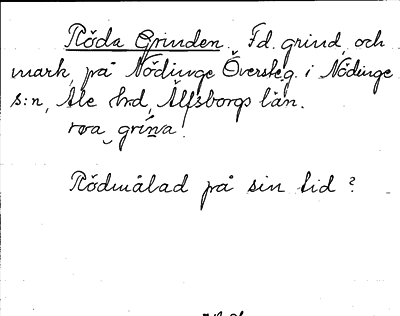 Röda Grinden. Fd. grind och
mark på Nödinge Översteg. i Nödinge
s:n, Ale hrd, Älfsborgs län.
røa grina.
Rödmålad på sin tid?